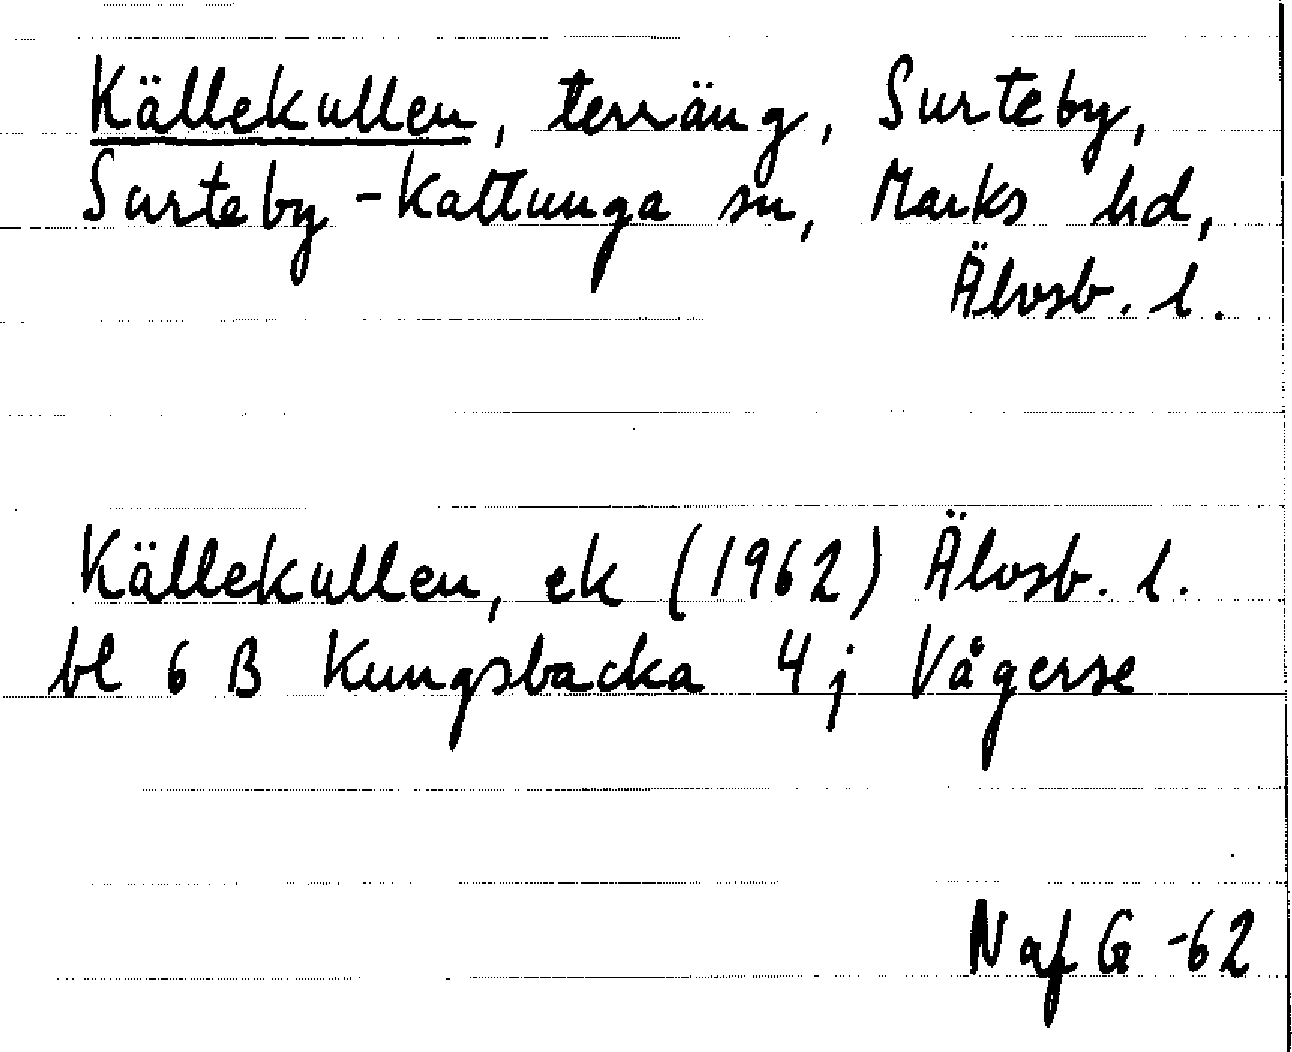 Källekullen, terräng, Surteby,
Surteby-Kattunga sn, Marks hd,
Älvsb. l.
Källekullen, ek (1962) Älvsb. l.
bl 6 B Kungsbacka 4 j Vågerse
N af G -62